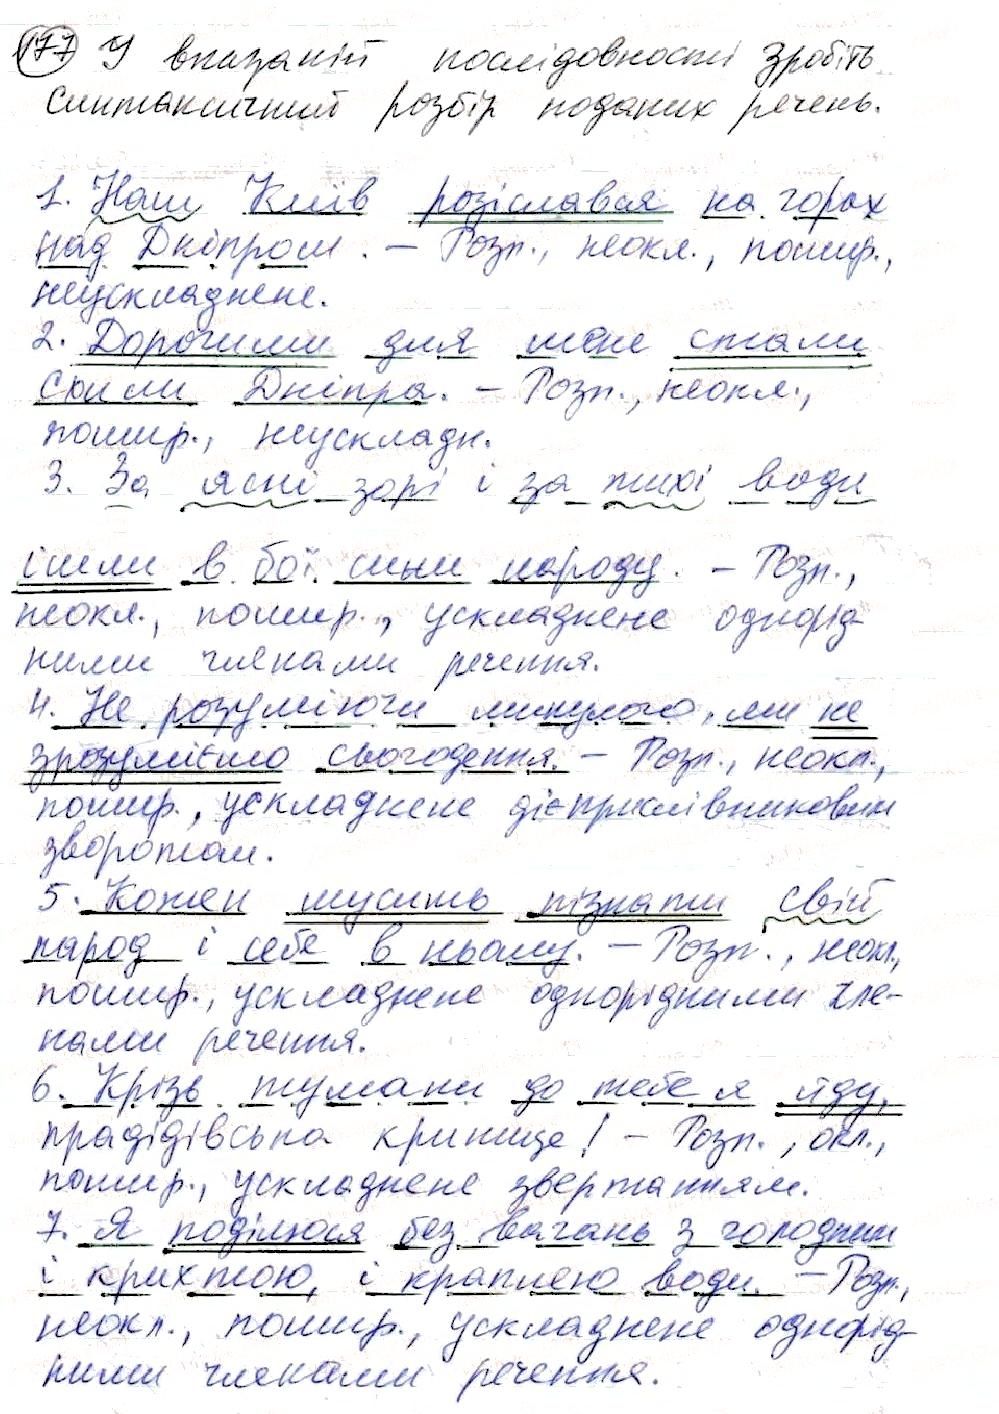 177 У вказаній послідовності зробіть
синтаксичний розбір поданих речень.
1. Наш Київ розіславсь на горах
над Дніпром. – Розп., неокл., пошир.,
неускладнене.
2. Дорогими для мене стали
схили Дніпра. – Розп., неокл.,
пошир., неускладн.
3. За ясні зорі і за тихі води
ішли в бої сини народу. – Розп.,
неокл., пошир., ускладнене однорід-
ними членами речення.
4. Не розуміючи минулого, ми не
зрозуміємо сьогодення. – Розп., неокл.,
пошир., ускладнене дієприслівниковим
зворотом.
5. Кожен мусить пізнати свій
народ і себе в ньому. – Розп., неокл.,
пошир., ускладнене однорідними чле-
нами речення.
6. Крізь тумани до тебе я йду,
прадідівська криницe! – Розп., окл.,
пошир., ускладнене звертанням.
7. Я поділюся без вагань з голодним
і крихтою, і краплею води. – Розп.,
неокл., пошир., ускладнене однорід-
ними членами речення.